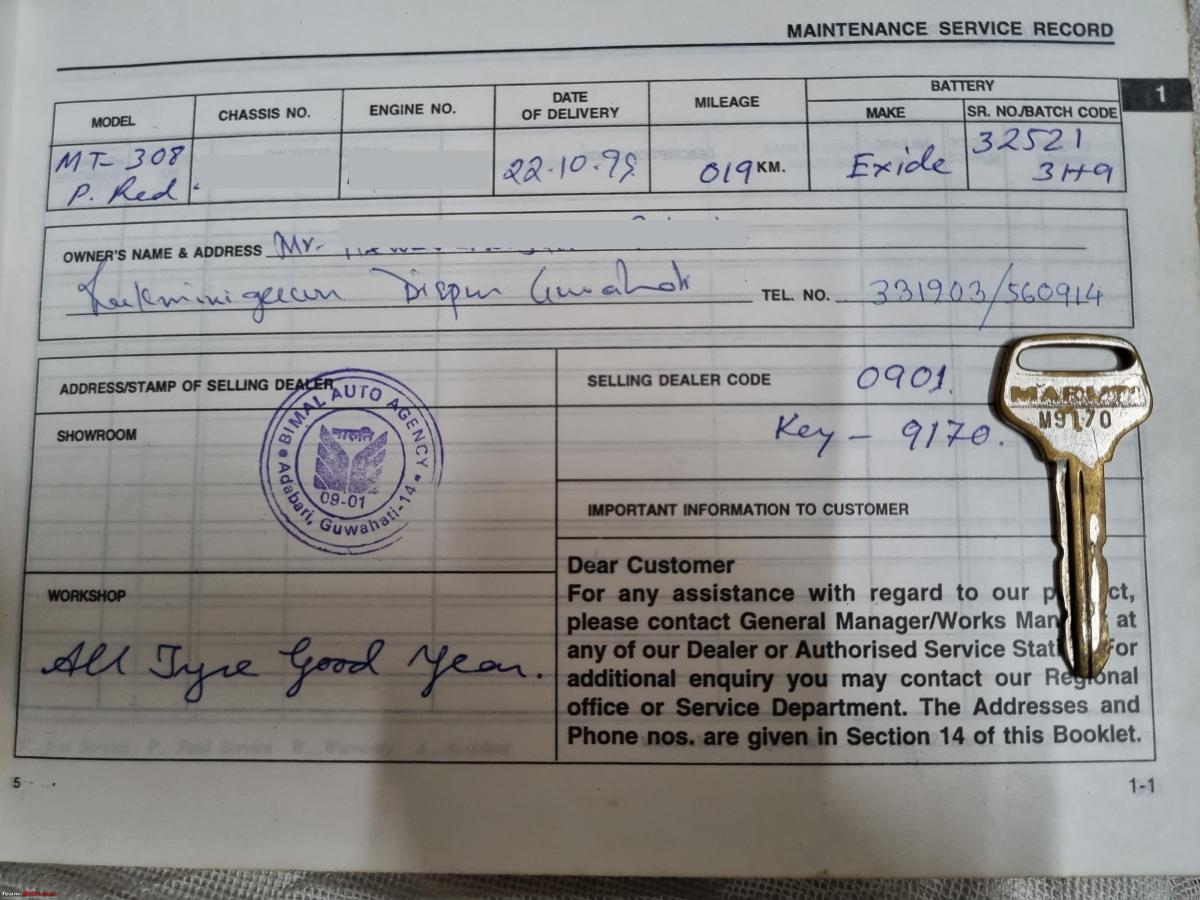 MAINTENANCE SERVICE RECORD
1
MODEL
CHASSIS NO.
ENGINE NO.
DATE
OF DELIVERY
MILEAGE
BATTERY
MAKE
SR. NO./BATCH CODE
MT- 308
P. Red
22.10.99
019 KM.
Exide
32521
3H9
OWNER'S NAME & ADDRESS Mr.
Dispur Guwahati TEL. NO. 331903/560914
ADDRESS/STAMP OF SELLING DEALER
BIMAL AUTO AGENCY
09-01
Adabari, Guwahati-14
SHOWROOM
WORKSHOP
All Tyre Good Year.
SELLING DEALER CODE 0901.
Key - 9170.
MARUTI
M9170
IMPORTANT INFORMATION TO CUSTOMER
Dear Customer
For any assistance with regard to our p ct,
please contact General Manager/Works Man at
any of our Dealer or Authorised Service Stati For
additional enquiry you may contact our Regional
office or Service Department. The Addresses and
Phone nos. are given in Section 14 of this Booklet.
5
1-1